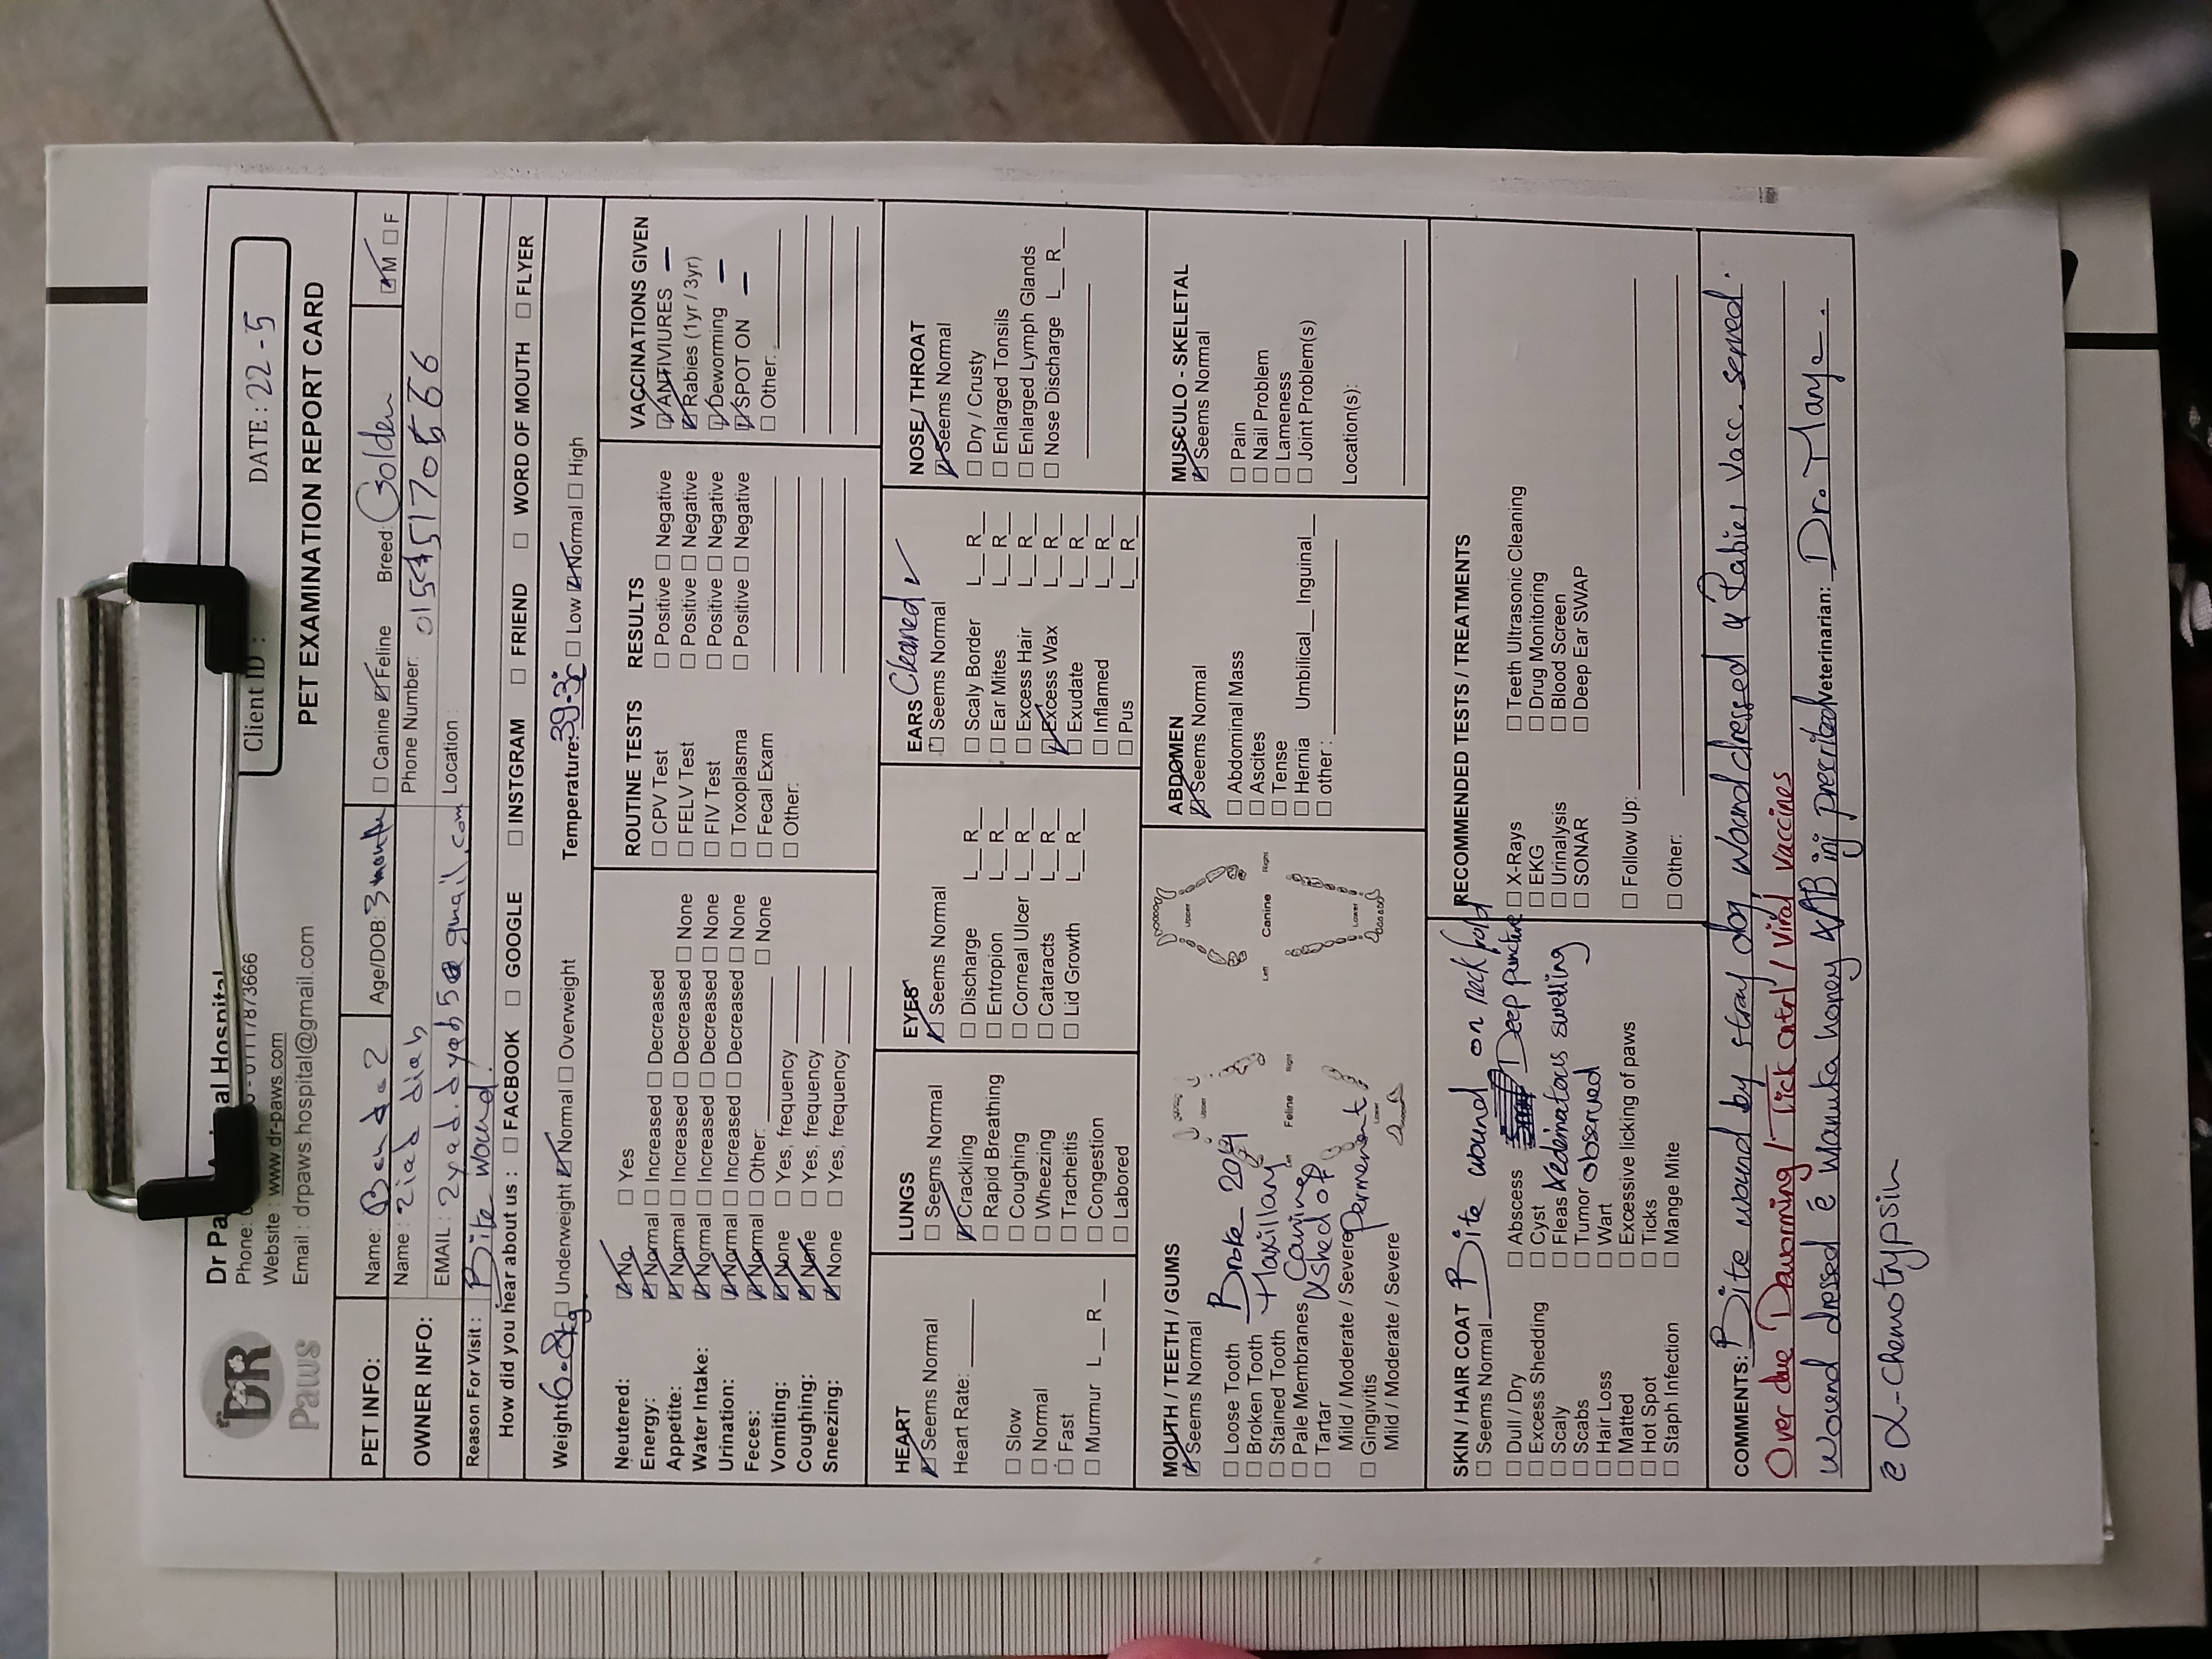 DR
Paws
Dr Pa al Hospital
Phone: 01117873666
Website : www.dr-paws.com
Email : drpaws.hospital@gmail.com
Client ID : DATE : 22 - 5
PET EXAMINATION REPORT CARD
PET INFO: Name: Age/DOB: 3 month ☐ Canine ☑ Feline Breed: Golden ☑ M ☐ F
OWNER INFO: Name : ziad diab Phone Number:
EMAIL : zyad.dyab5@gmail.com Location :
Reason For Visit : Bite wound.
How did you hear about us : ☐ FACEBOOK ☐ GOOGLE ☐ INSTGRAM ☐ FRIEND ☐ WORD OF MOUTH ☐ FLYER
Weight 6.8kg ☐ Underweight ☑ Normal ☐ Overweight Temperature: 39.3c ☐ Low ☑ Normal ☐ High
Neutered: ☑ No ☐ Yes
Energy: ☑ Normal ☐ Increased ☐ Decreased
Appetite: ☑ Normal ☐ Increased ☐ Decreased ☐ None
Water Intake: ☑ Normal ☐ Increased ☐ Decreased ☐ None
Urination: ☑ Normal ☐ Increased ☐ Decreased ☐ None
Feces: ☑ Normal ☐ Other: ☐ None
Vomiting: ☑ None ☐ Yes, frequency
Coughing: ☑ None ☐ Yes, frequency
Sneezing: ☑ None ☐ Yes, frequency
ROUTINE TESTS RESULTS
☐ CPV Test ☐ Positive ☐ Negative
☐ FELV Test ☐ Positive ☐ Negative
☐ FIV Test ☐ Positive ☐ Negative
☐ Toxoplasma ☐ Positive ☐ Negative
☐ Fecal Exam
☐ Other:
VACCINATIONS GIVEN
☑ ANTIVIURES –
☑ Rabies (1yr / 3yr)
☑ Deworming –
☑ SPOT ON –
☐ Other:
HEART
☑ Seems Normal
Heart Rate:
☐ Slow
☐ Normal
☐ Fast
☐ Murmur L__ R__
LUNGS
☐ Seems Normal
☑ Crackling
☐ Rapid Breathing
☐ Coughing
☐ Wheezing
☐ Tracheitis
☐ Congestion
☐ Labored
EYES
☑ Seems Normal
☐ Discharge L__R__
☐ Entropion L__R__
☐ Corneal Ulcer L__R__
☐ Cataracts L__R__
☐ Lid Growth L__R__
EARS Cleaned ✓
☐ Seems Normal
☐ Scaly Border L__R__
☐ Ear Mites L__R__
☐ Excess Hair L__R__
☑ Excess Wax L__R__
☐ Exudate L__R__
☐ Inflamed L__R__
☐ Pus L__R__
NOSE / THROAT
☑ Seems Normal
☐ Dry / Crusty
☐ Enlarged Tonsils
☐ Enlarged Lymph Glands
☐ Nose Discharge L__R__
MOUTH / TEETH / GUMS
☑ Seems Normal
☐ Loose Tooth Broke 204
☐ Broken Tooth Maxillary
☐ Stained Tooth Canine
☐ Pale Membranes
☐ Tartar
Mild / Moderate / Severe permenent
☐ Gingivitis
Mild / Moderate / Severe
Upper
Left Feline Right
Lower
Upper
Left Canine Right
Lower
ABDOMEN
☑ Seems Normal
☐ Abdominal Mass
☐ Ascites
☐ Tense
☐ Hernia Umbilical__ Inguinal__
☐ other :
MUSCULO - SKELETAL
☑ Seems Normal
☐ Pain
☐ Nail Problem
☐ Lameness
☐ Joint Problem(s)
Location(s):
SKIN / HAIR COAT Bite wound on neck fold
☐ Seems Normal
☐ Dull / Dry ☐ Abscess Deep puncture
☐ Excess Shedding ☐ Cyst
☐ Scaly ☐ Fleas Aedematous swelling
☐ Scabs ☐ Tumor observed
☐ Hair Loss ☐ Wart
☐ Matted ☐ Excessive licking of paws
☐ Hot Spot ☐ Ticks
☐ Staph Infection ☐ Mange Mite
RECOMMENDED TESTS / TREATMENTS
☐ X-Rays ☐ Teeth Ultrasonic Cleaning
☐ EKG ☐ Drug Monitoring
☐ Urinalysis ☐ Blood Screen
☐ SONAR ☐ Deep Ear SWAP
☐ Follow Up:
☐ Other:
COMMENTS: Bite wound by stray dog wound dressed & Rabies vacc. served.
Over due Deworming / Tick cntrl / viral vaccines
wound dressed c̄ Manuka honey & AB inj prescribed Veterinarian: Dr.
c̄ α-chemotrypsin